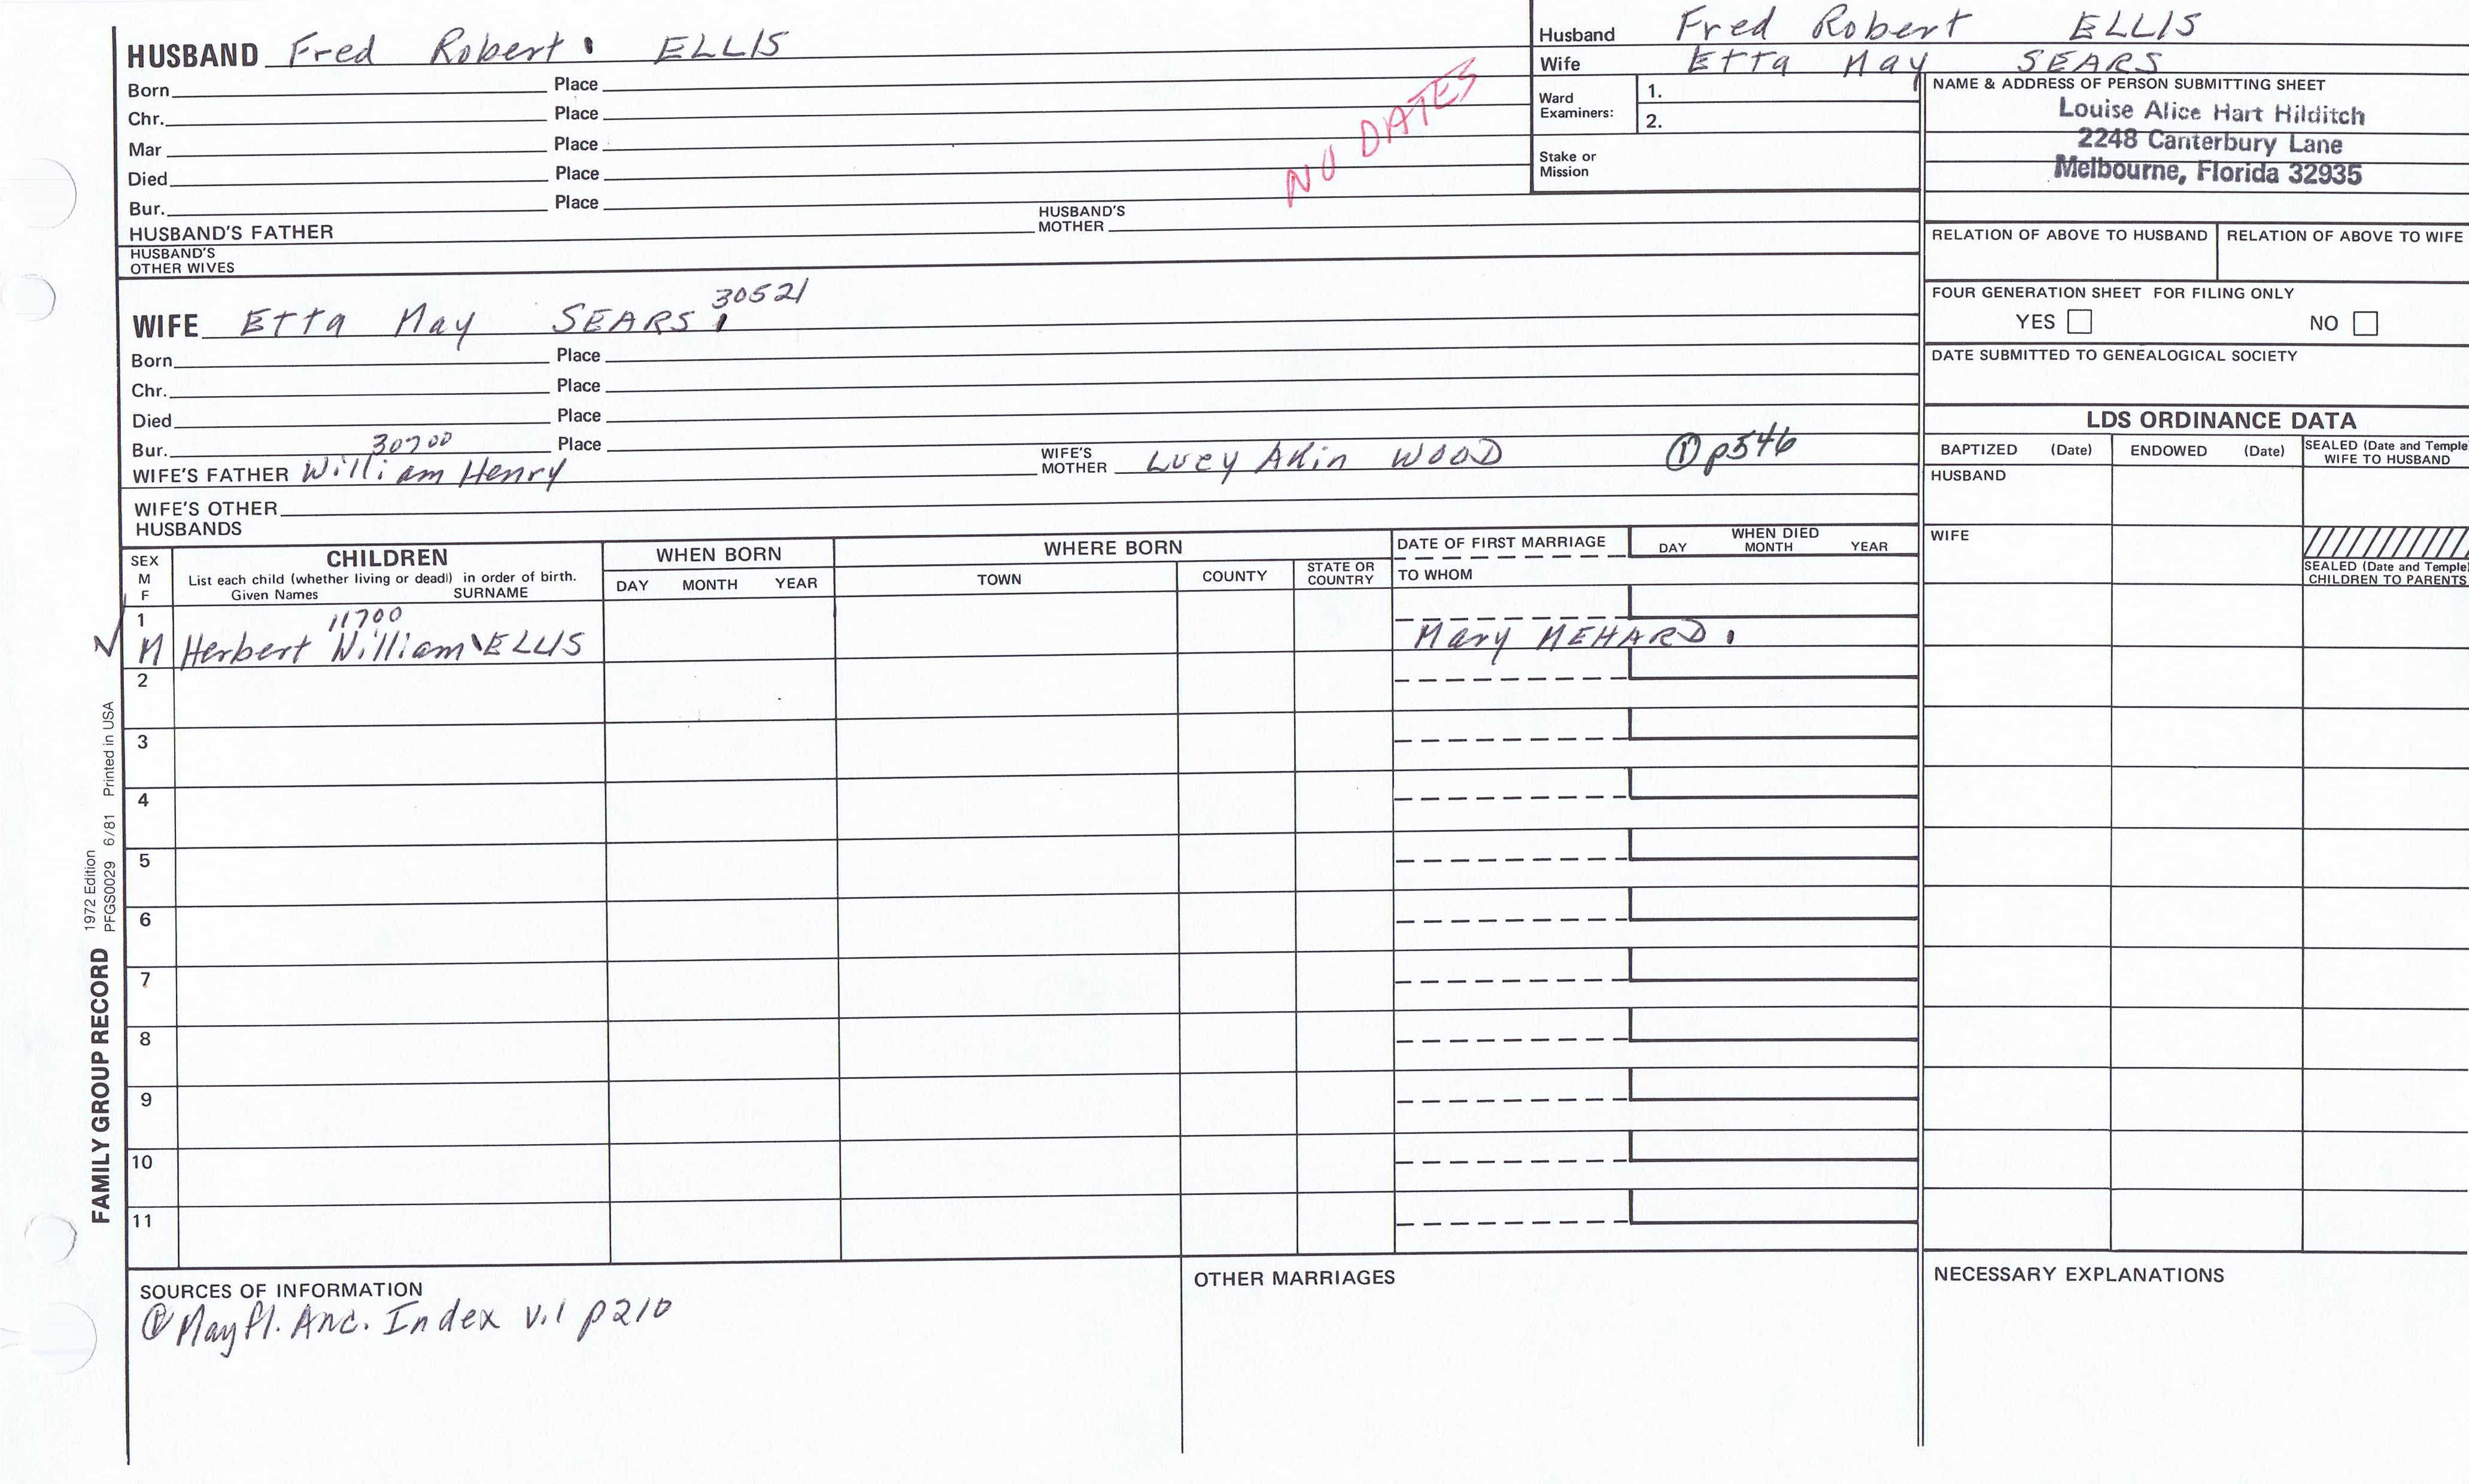 HUSBAND Fred Robert ELLIS
Born Place
Chr. Place
Mar Place
Died Place
Bur. Place
NO DATES
HUSBAND'S FATHER HUSBAND'S MOTHER
HUSBAND'S OTHER WIVES
Husband Fred Robert ELLIS
Wife Etta May SEARS
Ward Examiners: 1.
2.
Stake or Mission
NAME & ADDRESS OF PERSON SUBMITTING SHEET
Louise Alice Hart Hilditch
2248 Canterbury Lane
Melbourne, Florida 32935
RELATION OF ABOVE TO HUSBAND RELATION OF ABOVE TO WIFE
FOUR GENERATION SHEET FOR FILING ONLY
YES NO
DATE SUBMITTED TO GENEALOGICAL SOCIETY
30521
WIFE Etta May SEARS
Born Place
Chr. Place
Died Place
Bur. Place
30700
WIFE'S FATHER William Henry WIFE'S MOTHER Lucy Akin WOOD ① p546
WIFE'S OTHER HUSBANDS
LDS ORDINANCE DATA
BAPTIZED (Date) ENDOWED (Date) SEALED (Date and Temple) WIFE TO HUSBAND
HUSBAND
WIFE
SEALED (Date and Temple) CHILDREN TO PARENTS
SEX M F
CHILDREN
List each child (whether living or dead) in order of birth.
Given Names SURNAME
WHEN BORN
DAY MONTH YEAR
WHERE BORN
TOWN COUNTY STATE OR COUNTRY
DATE OF FIRST MARRIAGE
TO WHOM
WHEN DIED
DAY MONTH YEAR
1 11700
M Herbert William ELLIS Mary MEHARD
2
3
4
5
6
7
8
9
10
11
FAMILY GROUP RECORD
1972 Edition
PFGS0029 6/81 Printed in USA
SOURCES OF INFORMATION
① Mayfl. Anc. Index v.1 p210
OTHER MARRIAGES
NECESSARY EXPLANATIONS